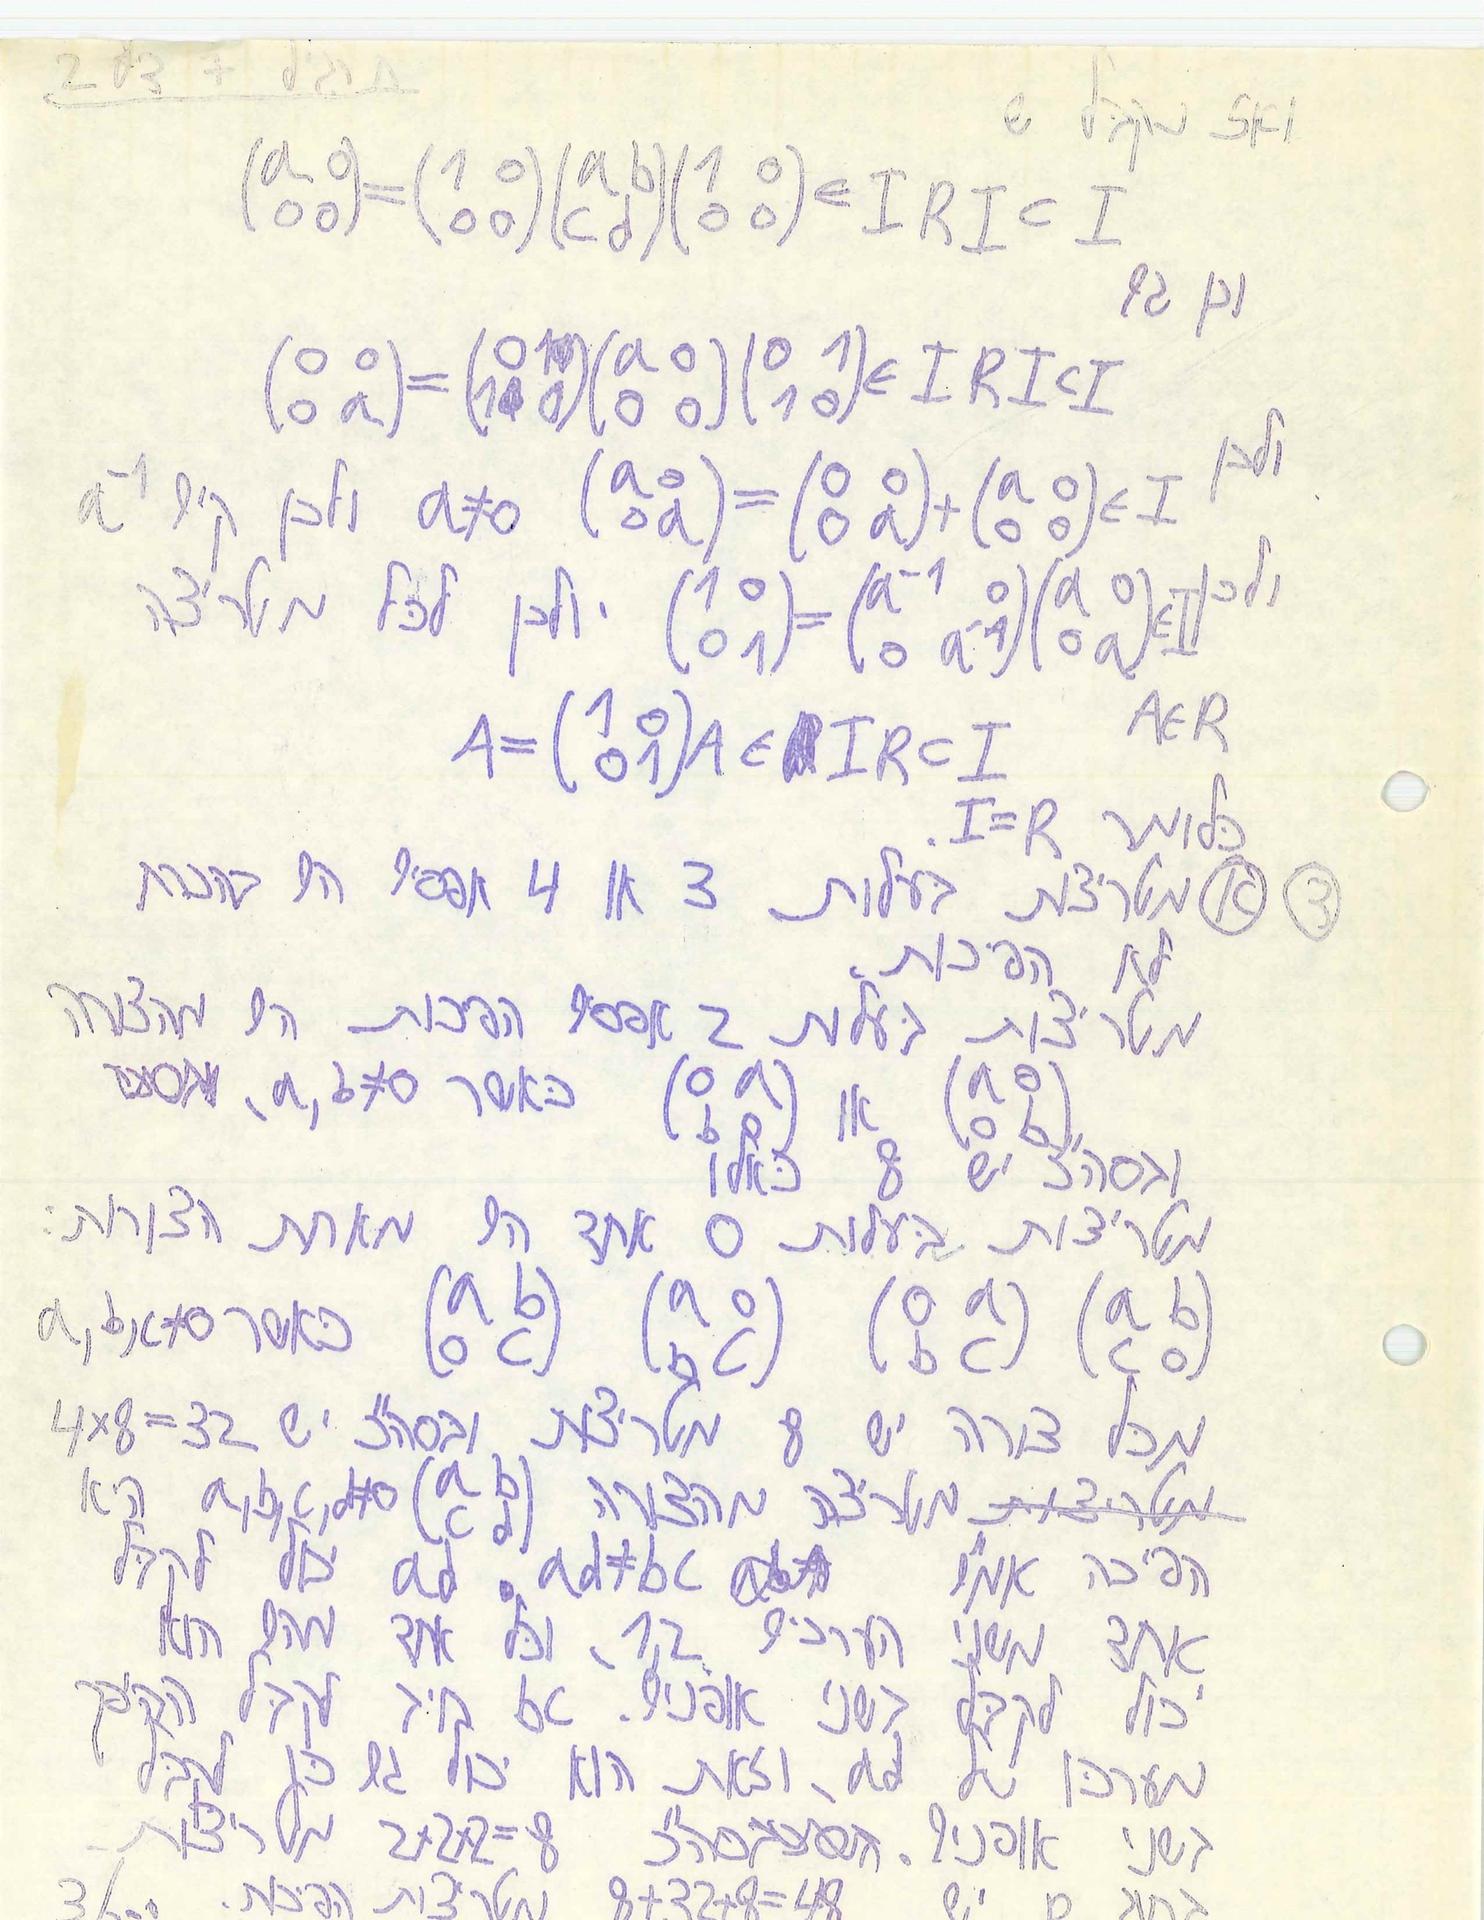 תרגיל 7 דף 2
ואז מקבלים ש
(a 0 / 0 0) = (1 0 / 0 0)(a b / c d)(1 0 / 0 0) ∈ IRI ⊂ I
וכן גם
(0 0 / 0 a) = (0 1 / 1 0)(a 0 / 0 0)(0 1 / 1 0) ∈ IRI ⊂ I
ולכן (a 0 / 0 a) = (0 0 / 0 a) + (a 0 / 0 0) ∈ I a≠0 ולכן קיים a⁻¹
ולכן (1 0 / 0 1) = (a⁻¹ 0 / 0 a⁻¹)(a 0 / 0 a) ∈ I. ולכן לכל מטריצה
A∈R A = (1 0 / 0 1)A ∈ IR ⊂ I
כלומר I=R.
③ א מטריצות בעלות 3 או 4 אפסים הם בהכרח
לא הפיכות.
מטריצות בעלות 2 אפסים הפיכות הם מהצורה
(a 0 / 0 b) או (0 a / b 0) כאשר a,b≠0,
ובסה"כ יש 8 כאלו
מטריצות בעלות 0 אחד הם מאחת הצורות:
(a b / c 0) (0 a / b c) (a 0 / b c) (a b / 0 c) כאשר a,b,c≠0
מכל צורה יש 8 מטריצות ובסה"כ יש 4×8=32
מטריצות מטריצה מהצורה (a b / c d) a,b,c,d≠0 היא
הפיכה אמ"מ ad≠bc. ad יכול לקבל
אחד משני הערכים 1,2, וכל אחד מהם הוא
יכול לקבל בשני אופנים. אז חייב לקבל ההיפך
מערכו של ad, וזאת הוא יכול גם כן לקבל
בשני אופנים. בסה"כ 2×2×2=8 מטריצות
יש 8+32+8=48 מטריצות הפיכות.